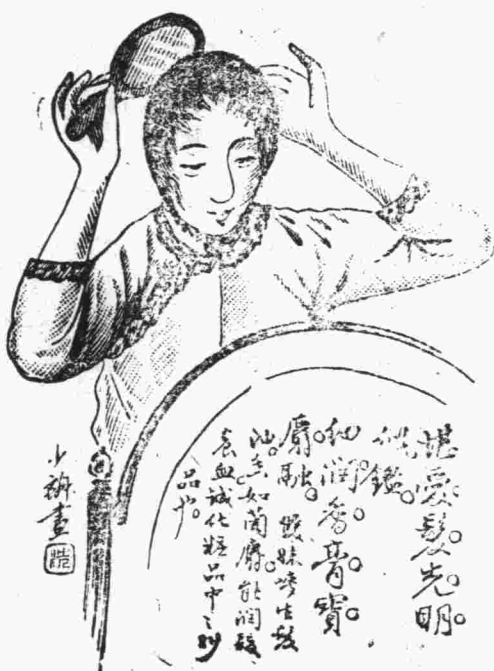 堪愛髮光明。
似鑑。
細潤香膏寶。
麝融。雙妹嘜生髮
油。香如蘭麝。能潤髮、
養血誠化粧品中之妙
品也。
少 畫